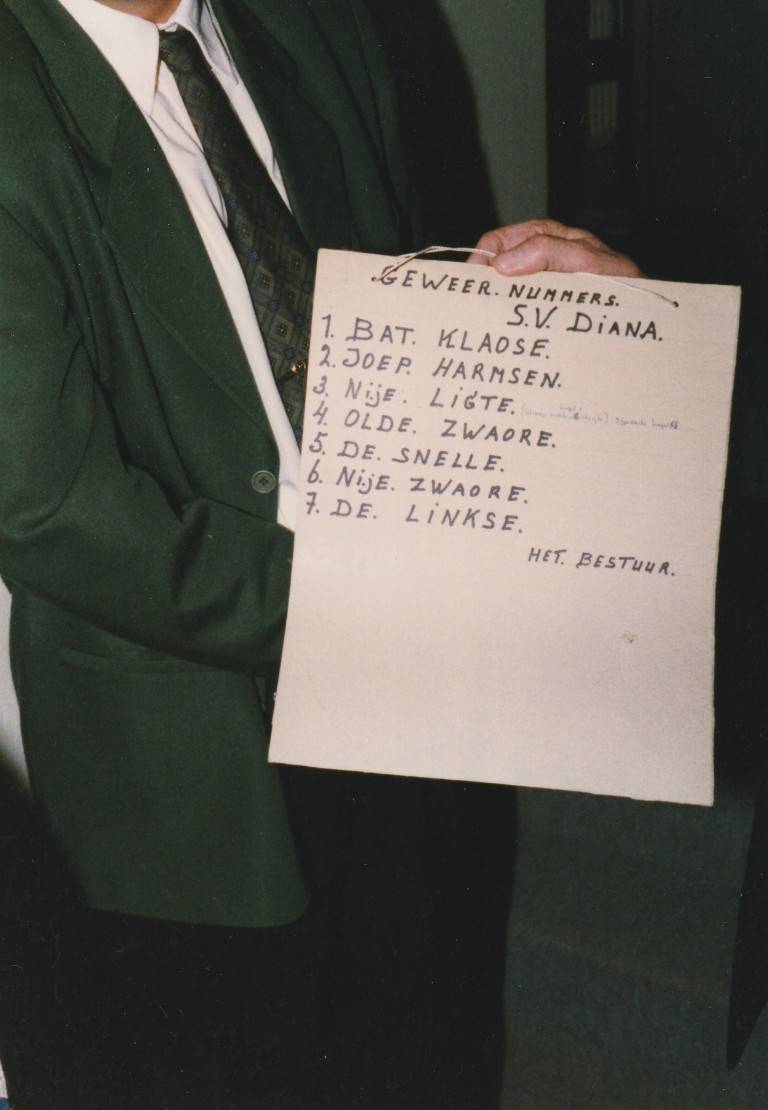 GEWEER. NUMMERS.
S.V. DiANA.
1. BAT. KLAOSE.
2. JOEP. HARMSEN.
3. NijE. LiGTE.
4. OLDE. ZWAORE.
5. DE. SNELLE.
6. NijE. ZWAORE.
7. DE. LiNKSE.
HET. BESTUUR.